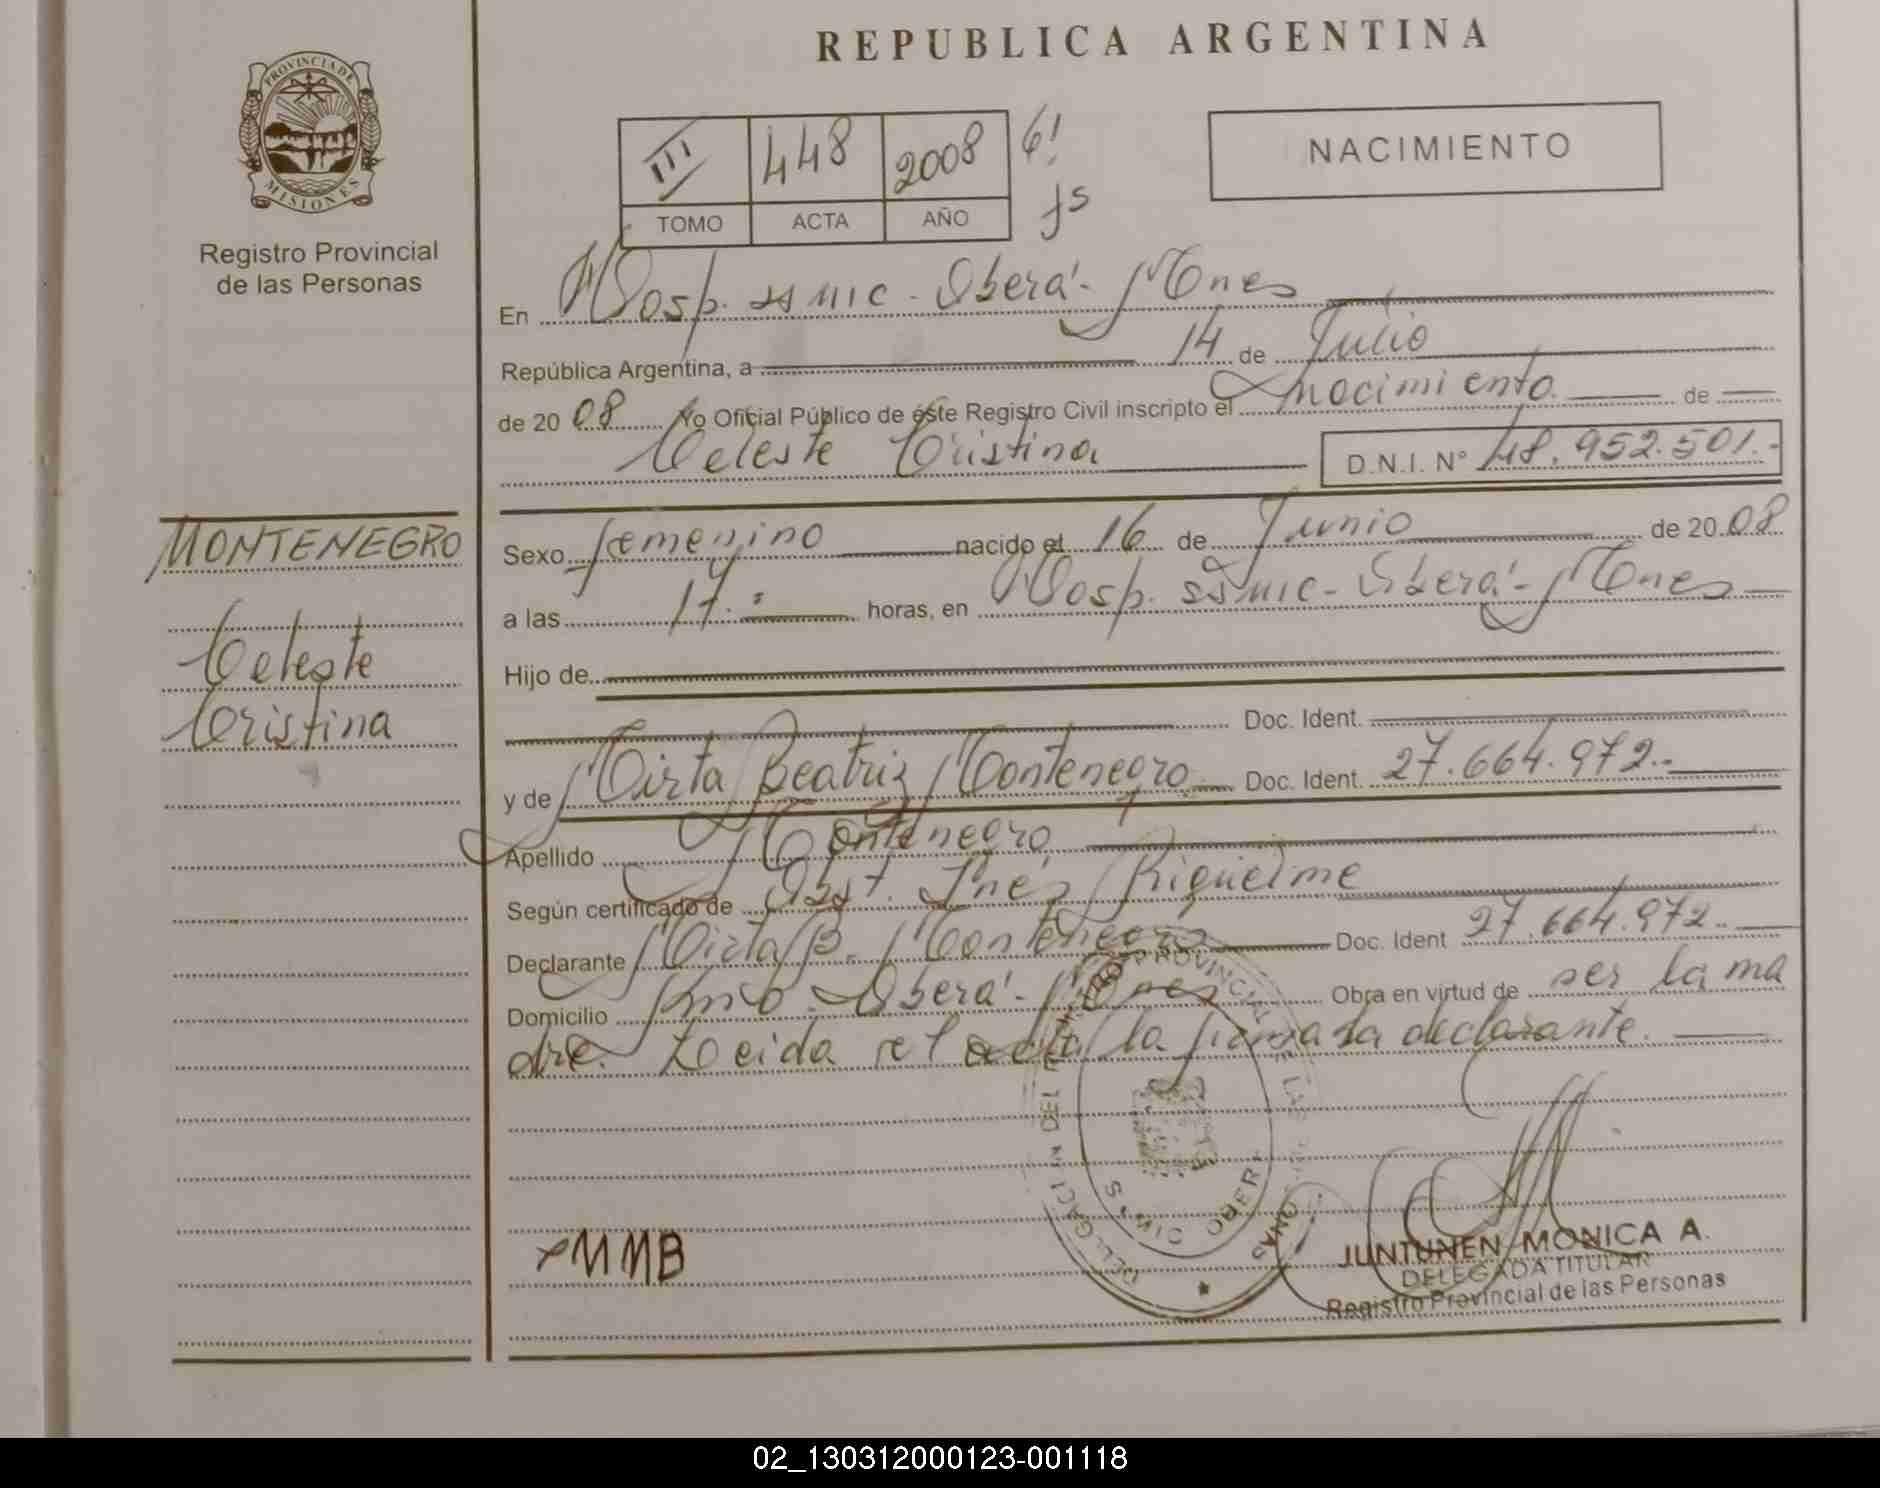 REPUBLICA ARGENTINA
PROVINCIA DE
MISIONES
Registro Provincial
de las Personas
III 448 2008 6!
fs
TOMO ACTA AÑO
NACIMIENTO
En Hosp. ssmic - Oberá - Mnes
República Argentina, a 14 de Julio
de 2008 Yo Oficial Público de éste Registro Civil inscripto el nacimiento de
Celeste Cristina D.N.I. N° 48.952.501.-
MONTENEGRO
Celeste
Cristina
Sexo femenino nacido el 16 de Junio de 2008
a las 17.- horas, en Hosp. ssmic - Oberá - Mnes
Hijo de
Doc. Ident.
y de Mirta Beatriz Montenegro Doc. Ident. 27.664.972.-
Apellido Montenegro
Según certificado de Obst. Inés Riquelme
Declarante Mirta B. Montenegro Doc. Ident 27.664.972.-
Domicilio Oberá - Mnes Obra en virtud de ser la ma
dre. Leida el acta la firma la declarante.
MMB
JUNTUNEN MONICA A.
DELEGADA TITULAR
Registro Provincial de las Personas
02_130312000123-001118